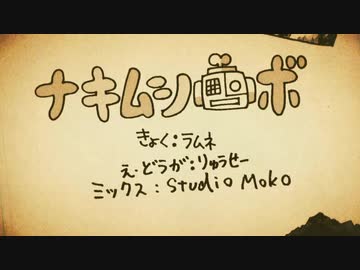 ナキムシロボ
きょく:ラムネ
え・どうが:りゅうせー
ミックス:Studio Moko